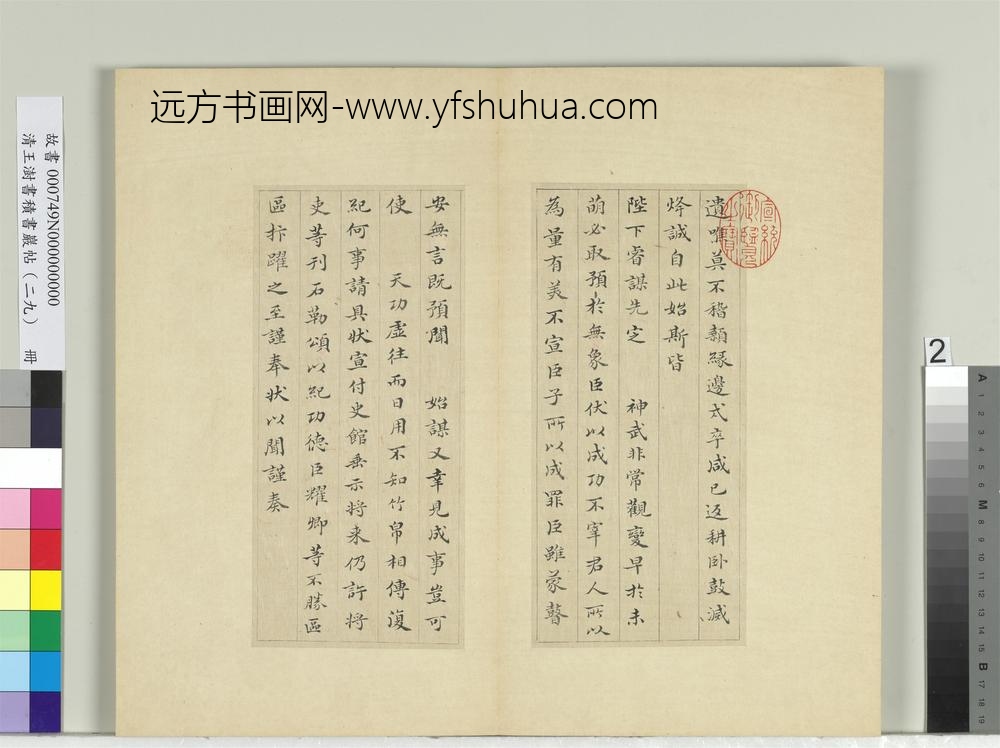 远方书画网-www.yfshuhua.com
故書 000749N000000000
清王澍書積書巖帖（二九） 冊
2
遺 莫不稽顙緣邊戍卒咸已返耕卧鼓滅
烽誠自此始斯皆
陛下睿謀先定 神武非常觀變早於未
萌必取預於無象臣伏以成功不宰君人所以
為量有美不宣臣子所以成罪臣雖蒙瞽
安無言既預聞 始謀又幸見成事豈可
使 天功虛往而日用不知竹帛相傳復
紀何事請具狀宣付史館垂示將来仍許將
吏等刊石勒頌以紀功德臣耀卿等不勝區
區抃躍之至謹奉狀以聞謹奏
宣統御覽之寶
A 1 2 3 4 5 6 M 8 9 10 11 12 13 14 15 B 17 18 19